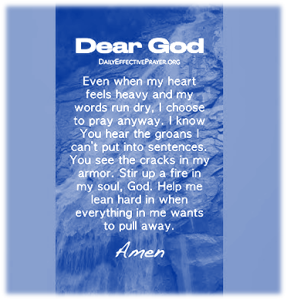 Dear God
DAILYEFFECTIVEPRAYER.ORG
Even when my heart
feels heavy and my
words run dry, I choose
to pray anyway. I know
You hear the groans I
can't put into sentences.
You see the cracks in my
armor. Stir up a fire in
my soul, God. Help me
lean hard in when
everything in me wants
to pull away.
Amen